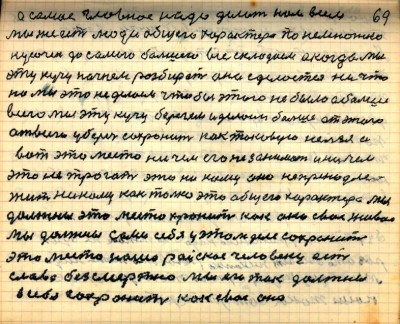 69
а самое главное надо делать нам всем
мы же есть люди общего характера по немножко
кучочек до самого большего все складаем а когда мы
эту кучу начнем розбирать она сделается ни что
но мы это не делаем чтобы этого не было а больше
всего мы эту кучу бережем и делаем больше от этого
уберех сохранить как таковую нельзя а
вот это место ни чем его не занимать и ни чем
это не трогать это ни кому оно непринодле
жит никому как только это общего характера мы
должны это место хронить как оно свое живое
мы должны сами себя у этом деле сохранить
это место нашо райское человеку ему
слава безсмертно мы их так должны
в себя сохронить как свое око